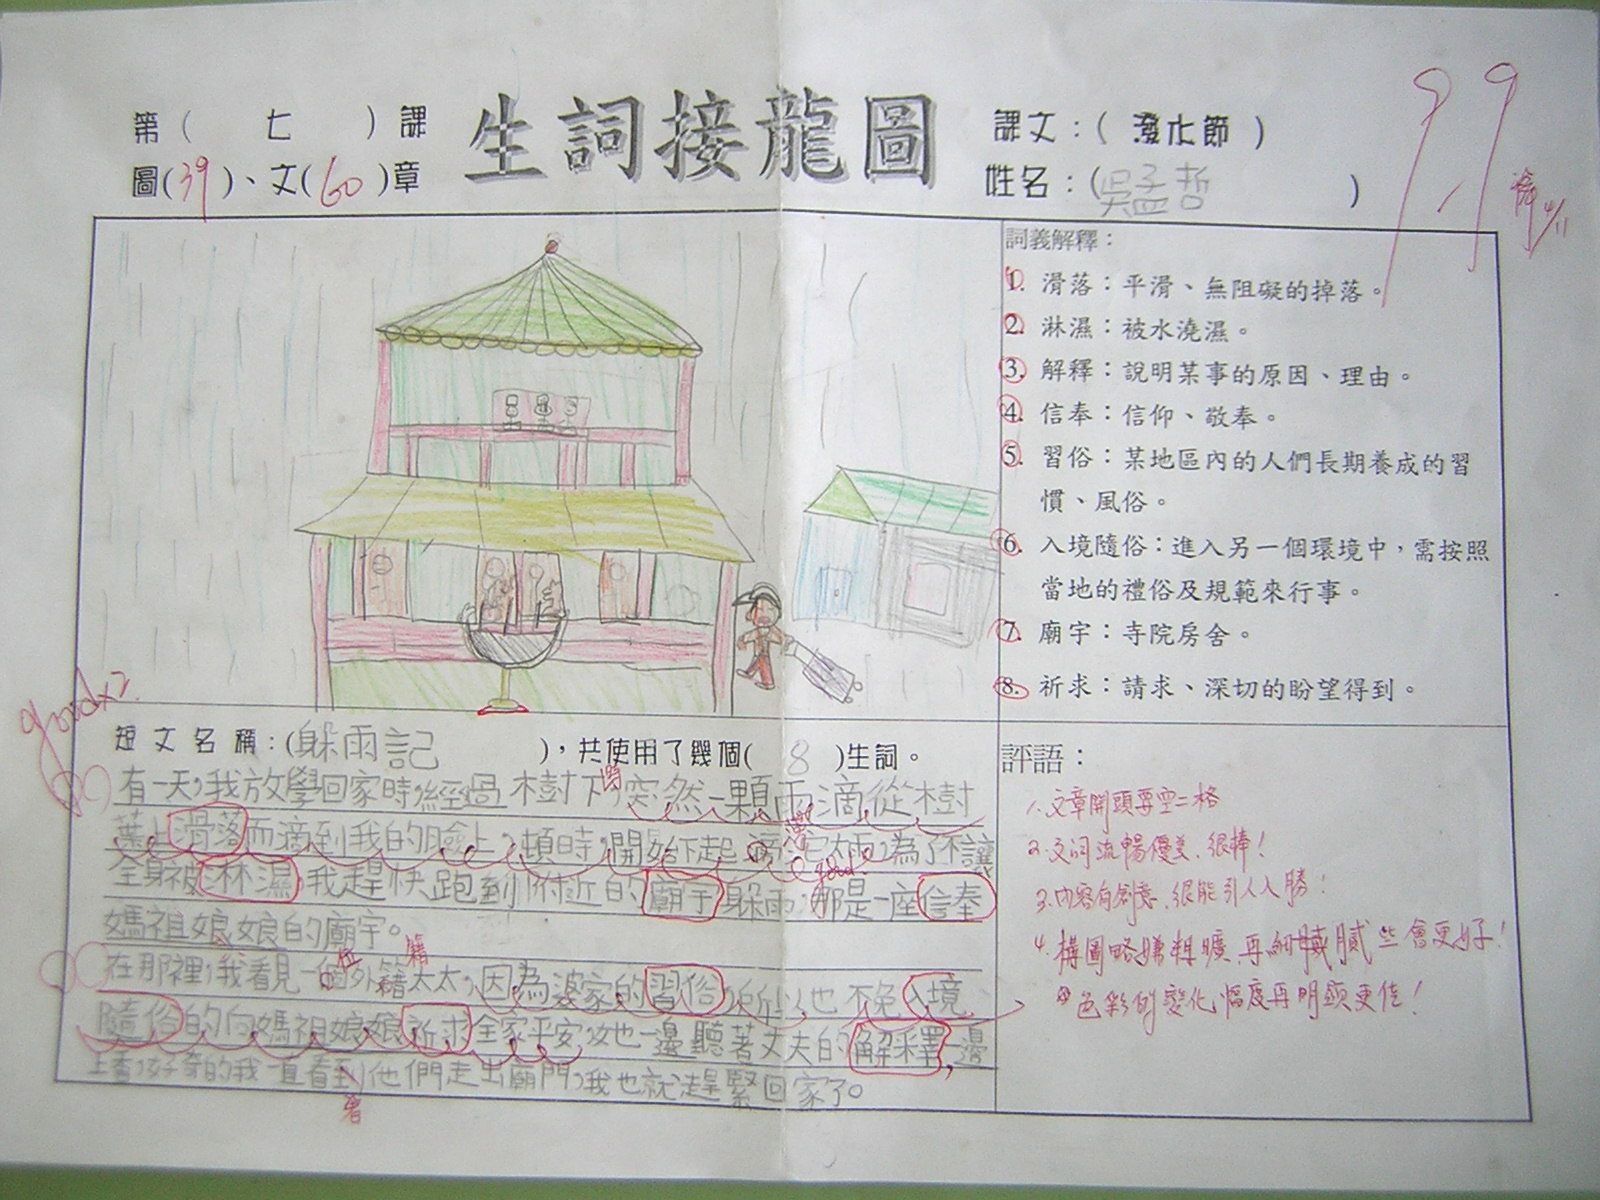 第(七)課
生詞接龍圖
課文:(潑水節)
圖(39)、文(60)章
姓名:(吳孟哲)
99
4/11
詞義解釋:
1. 滑落:平滑、無阻礙的掉落。
2. 淋濕:被水澆濕。
3. 解釋:說明某事的原因、理由。
4. 信奉:信仰、敬奉。
5. 習俗:某地區內的人們長期養成的習
慣、風俗。
6. 入境隨俗:進入另一個環境中,需按照
當地的禮俗及規範來行事。
7. 廟宇:寺院房舍。
8. 祈求:請求、深切的盼望得到。
goodx2
短文名稱:(躲雨記),共使用了幾個(8)生詞。
有一天,我放學回家時,經過樹下,突然一顆雨滴從樹
葉上滑落而滴到我的臉上,頓時,開始下起大雨,為了不讓
good
全身被淋濕,我趕快跑到附近的廟宇躲雨,那是一座信奉
媽祖娘娘的廟宇。
位 籍
在那裡,我看見一個外籍太太,因為婆家的習俗,所以也不免入境
隨俗的向媽祖娘娘祈求全家平安,她一邊聽著丈夫的解釋,一邊
上香,好奇的我一直看到他們走出廟門,我也就趕緊回家了。
著
評語:
1. 文章開頭要空二格
2. 文詞流暢優美、很棒!
3. 內容有創意、很能引人入勝!
4. 構圖略嫌粗曠、再細膩些會更好!
色彩的變化、幅度再明顯更佳!